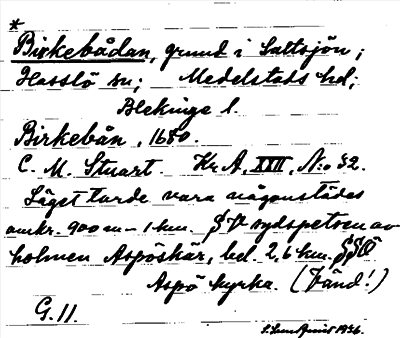 *
Birkebådan, grund i Saltsjön;
Hasslö sn; Medelstads hd;
Blekinge l.
Birkebån, 1680.
C. M. Stuart. Kr. A, XXII, N:o 32.
Läget torde vara någonstädes
omkr. 900 m – 1 km. SV sydspetsen av
holmen Aspöskär, bel. 2,6 km. SSO
Aspö kyrka. (Vänd!)
G. 11.
1936.